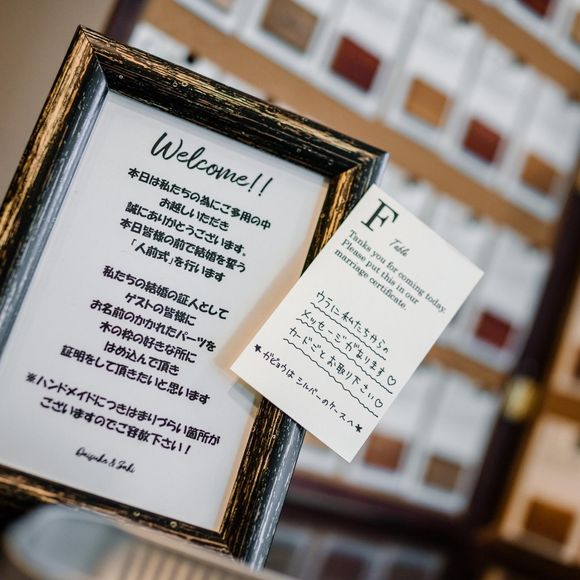 Welcome!!
本日は私たちの為にご多用の中
お越しいただき
誠にありがとうございます。
本日皆様の前で結婚を誓う
「人前式」を行います
私たちの結婚の証人として
ゲストの皆様に
お名前のかかれたパーツを
木の枠の好きな所に
はめ込んで頂き
証明をして頂きたいと思います
※ハンドメイドにつきはまりづらい箇所が
ございますのでご容赦下さい！
Daisuke & Saki
F Table
Tanks you for coming today.
Please put this in our
marriage certificate.
ウラに私たちからの
メッセージがあります♡
カードごとお取り下さい♡
★ガビョウはシルバーのケースへ★